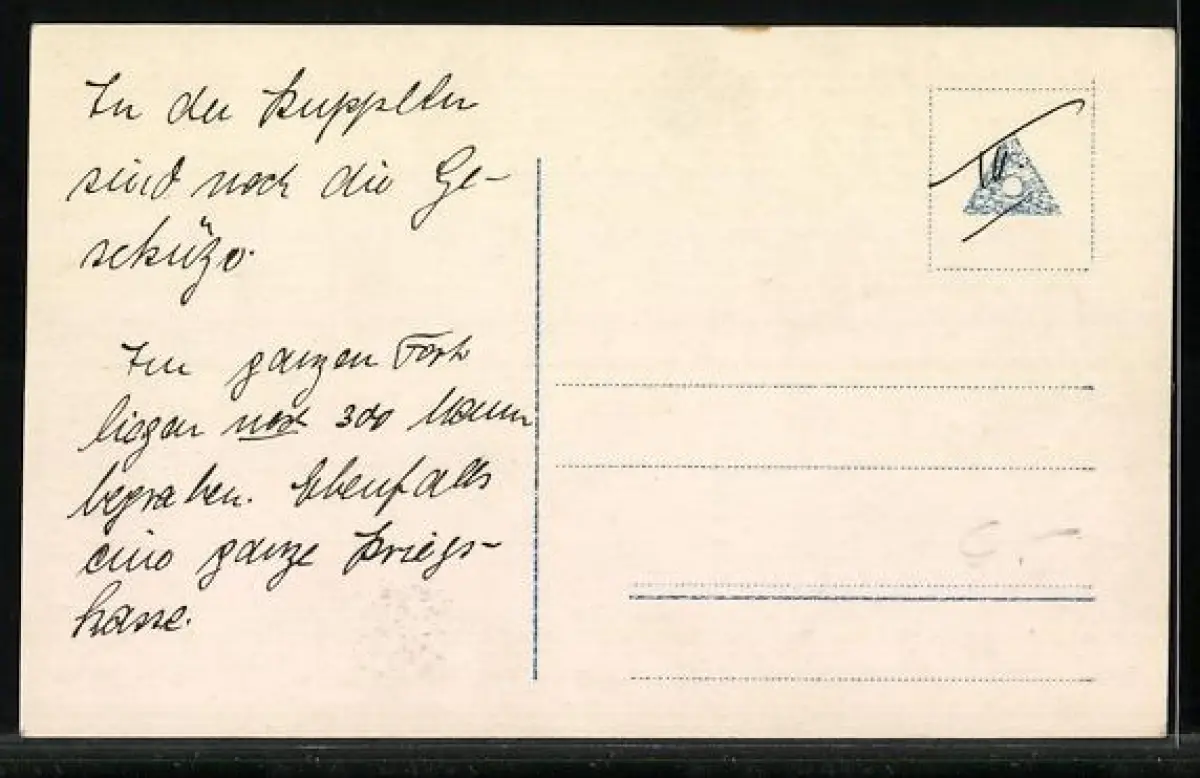 In der Kuppeln
sind noch die Ge-
schüze.
Im ganzen Fort
liegen noch 300 Mann
begraben. Ebenfalls
eine ganze Kriegs-
kasse.